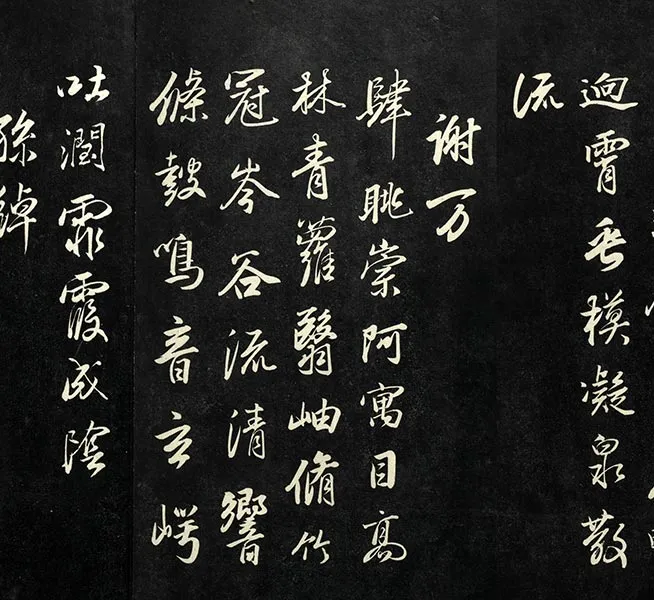 迥霄垂模凝泉散
流
謝万
肆眺崇阿寓目高
林青蘿翳岫脩竹
冠岑谷流清響
條鼓鳴音玄崿
吐潤霏霞成陰
孫綽